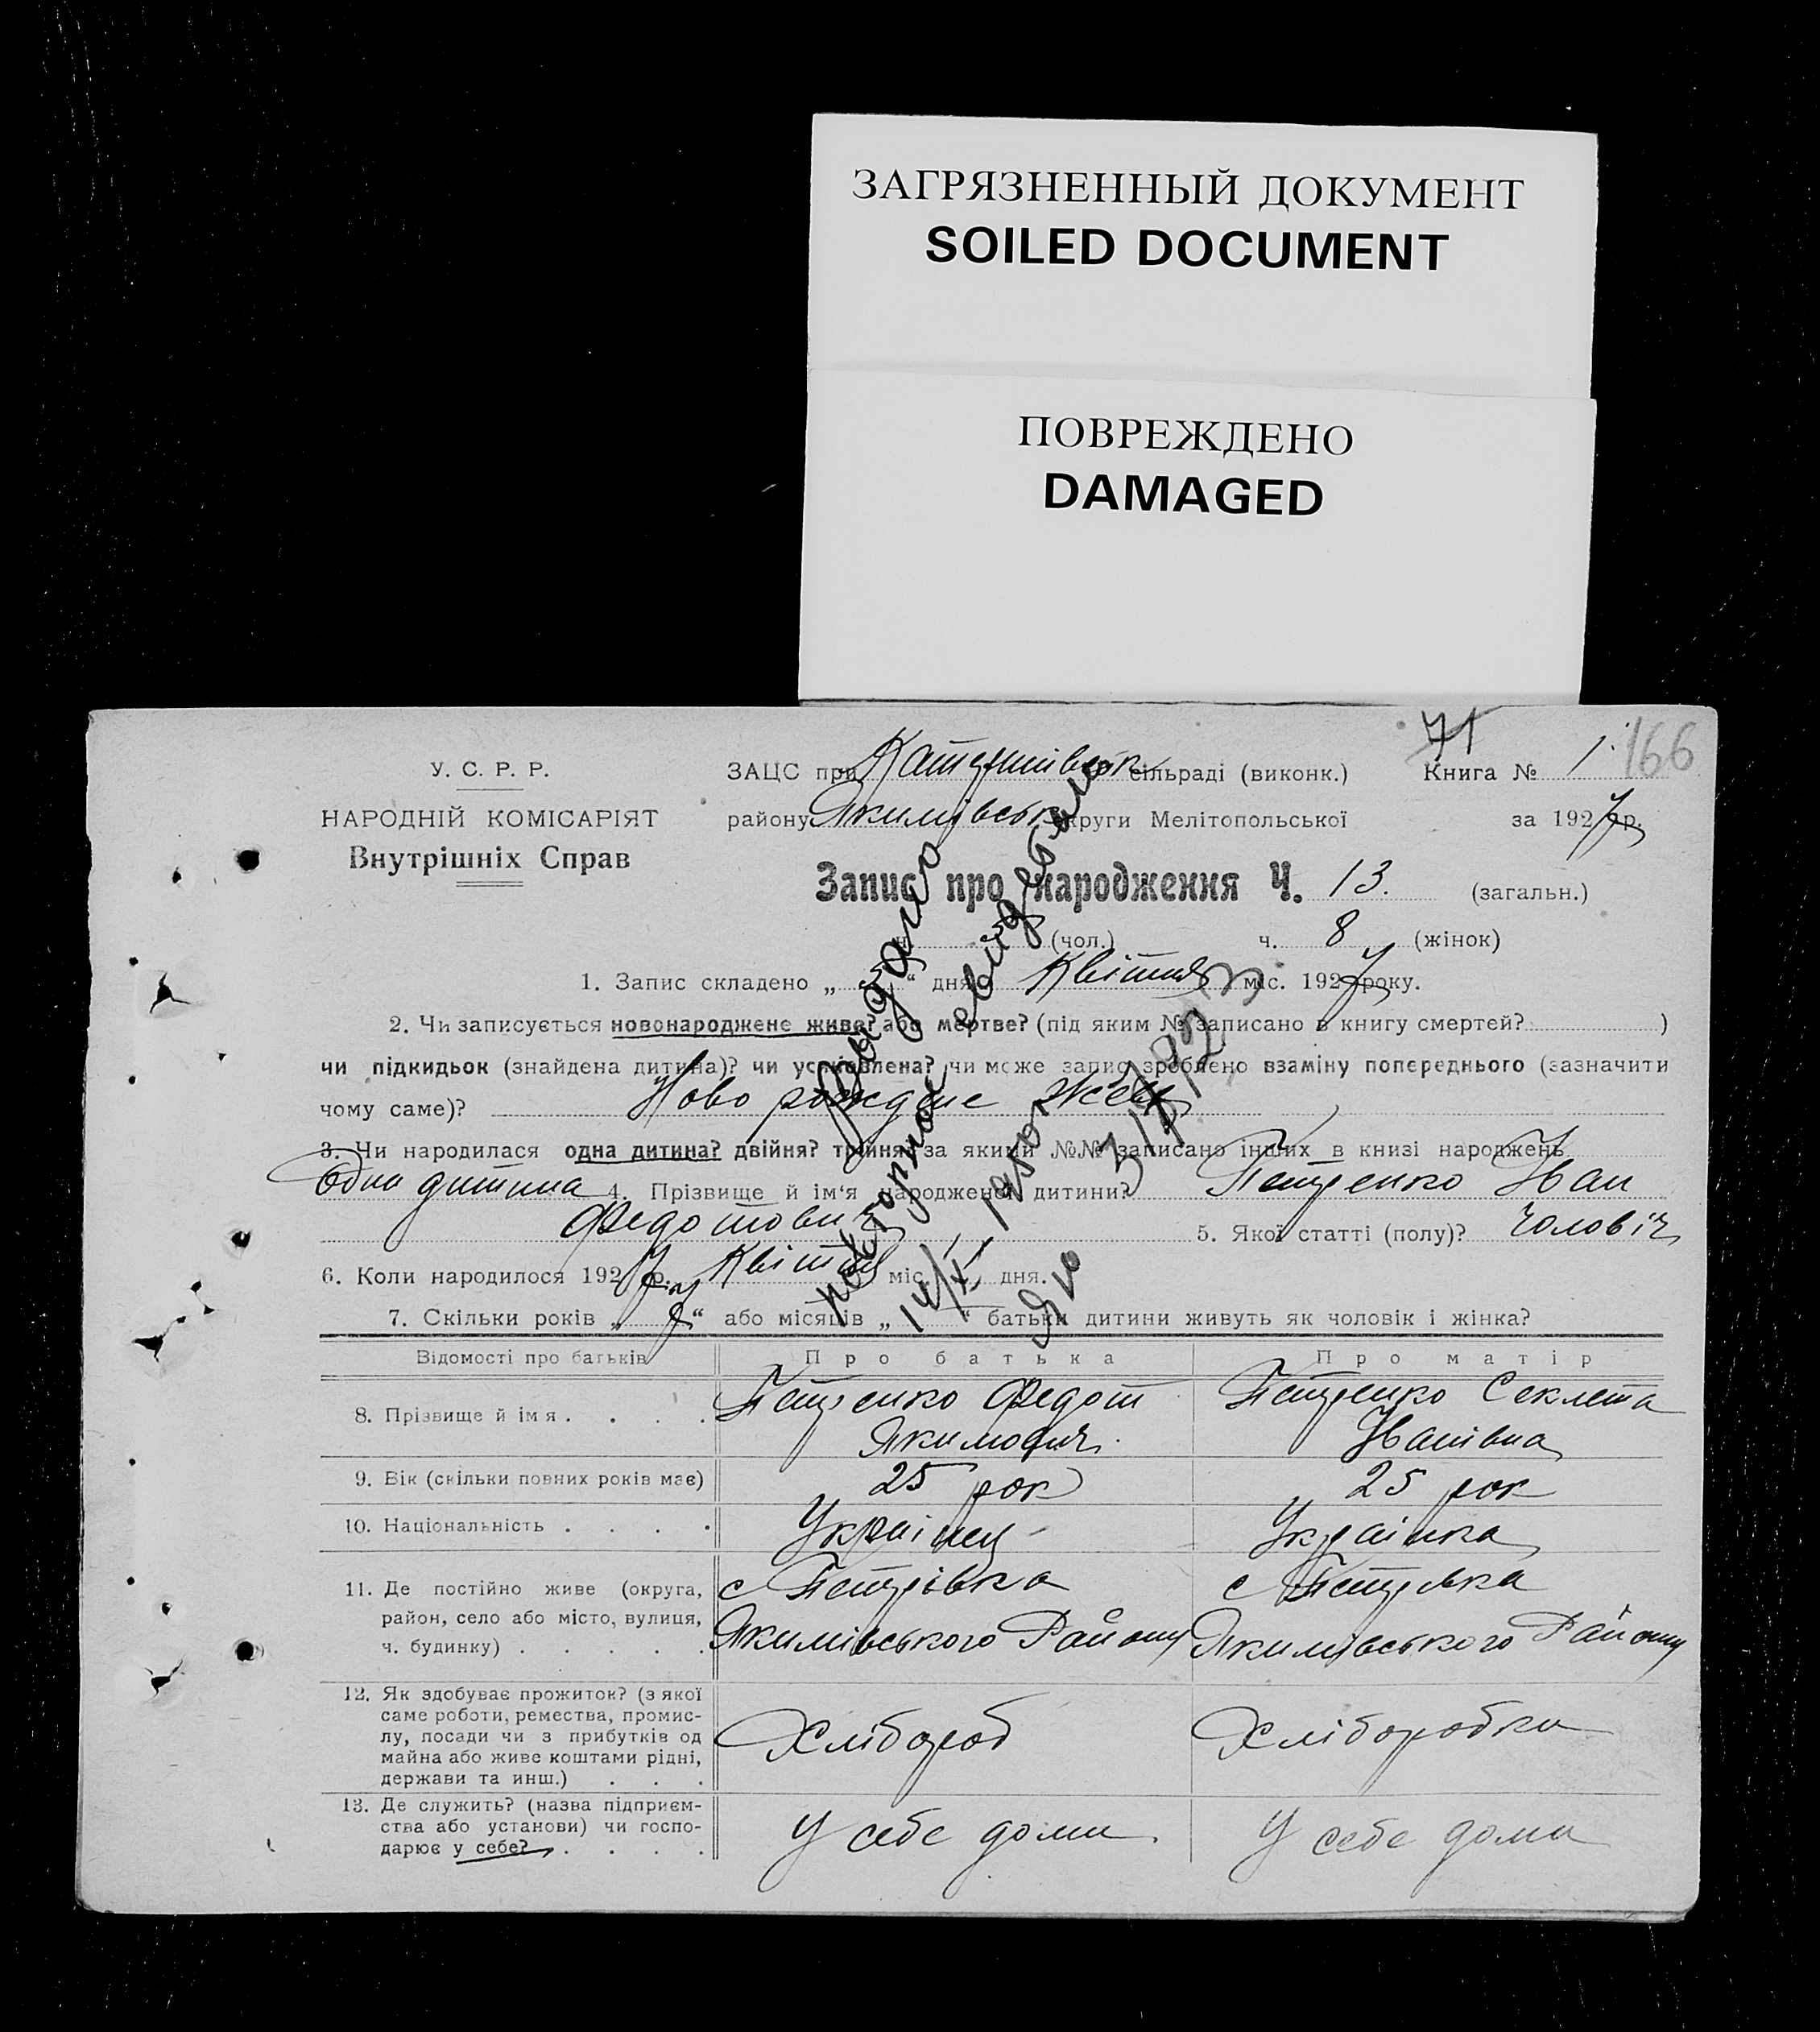 ЗАГРЯЗНЕННЫЙ ДОКУМЕНТ
SOILED DOCUMENT
ПОВРЕЖДЕНО
DAMAGED
71
166
У. С. Р. Р.
НАРОДНІЙ КОМІСАРІЯТ
Внутрішніх Справ
ЗАЦС при сільраді (виконк.) Книга № 1
району Якимівськ округи Мелітопольської за 1927 р.
Запис про народження Ч. 13. (загальн.)
ч. (чол.) ч. 8 (жінок)
1. Запис складено „ 5 “ дня Квітня міс. 1927 року.
2. Чи записується новонароджене живе? або мертве? (під яким № записано в книгу смертей? )
чи підкидьок (знайдена дитина)? чи усиновлена? чи може запис зроблено взаміну попереднього (зазначити
чому саме)? Ново рожденне
3. Чи народилася одна дитина? двійня? трійня? за якими №№ записано інших в книзі народжень
Одна дитина 4. Прізвище й ім‘я народженої дитини? Петренко Іван
Федотович 5. Якої статті (полу)? чоловіч
6. Коли народилося 1927 р. Квітня міс. 1 дня.
7. Скільки років „ “ або місяців „ “ батьки дитини живуть як чоловік і жінка?
Відомості про батьків Про батька Про матір
8. Прізвище й імя . . . . Петренко Федот Якимович. Петренко Секлета Іванівна
9. Вік (скільки повних років має) 25 рок 25 рок
10. Національність . . . . Українец Українка
11. Де постійно живе (округа, с Петрівка с Петрівка
район, село або місто, вулиця, Якимівського Району Якимівського Району
ч. будинку) . . . . .
12. Як здобуває прожиток? (з якої
саме роботи, ремества, промис-
лу, посади чи з прибутків од Хлібороб Хліборобка
майна або живе коштами рідні,
держави та инш.) . . .
13. Де служить? (назва підприєм-
ства або установи) чи госпо- У себе дома. У себе дома
дарює у себе? . . . .
Выдано
повторное свидетельство